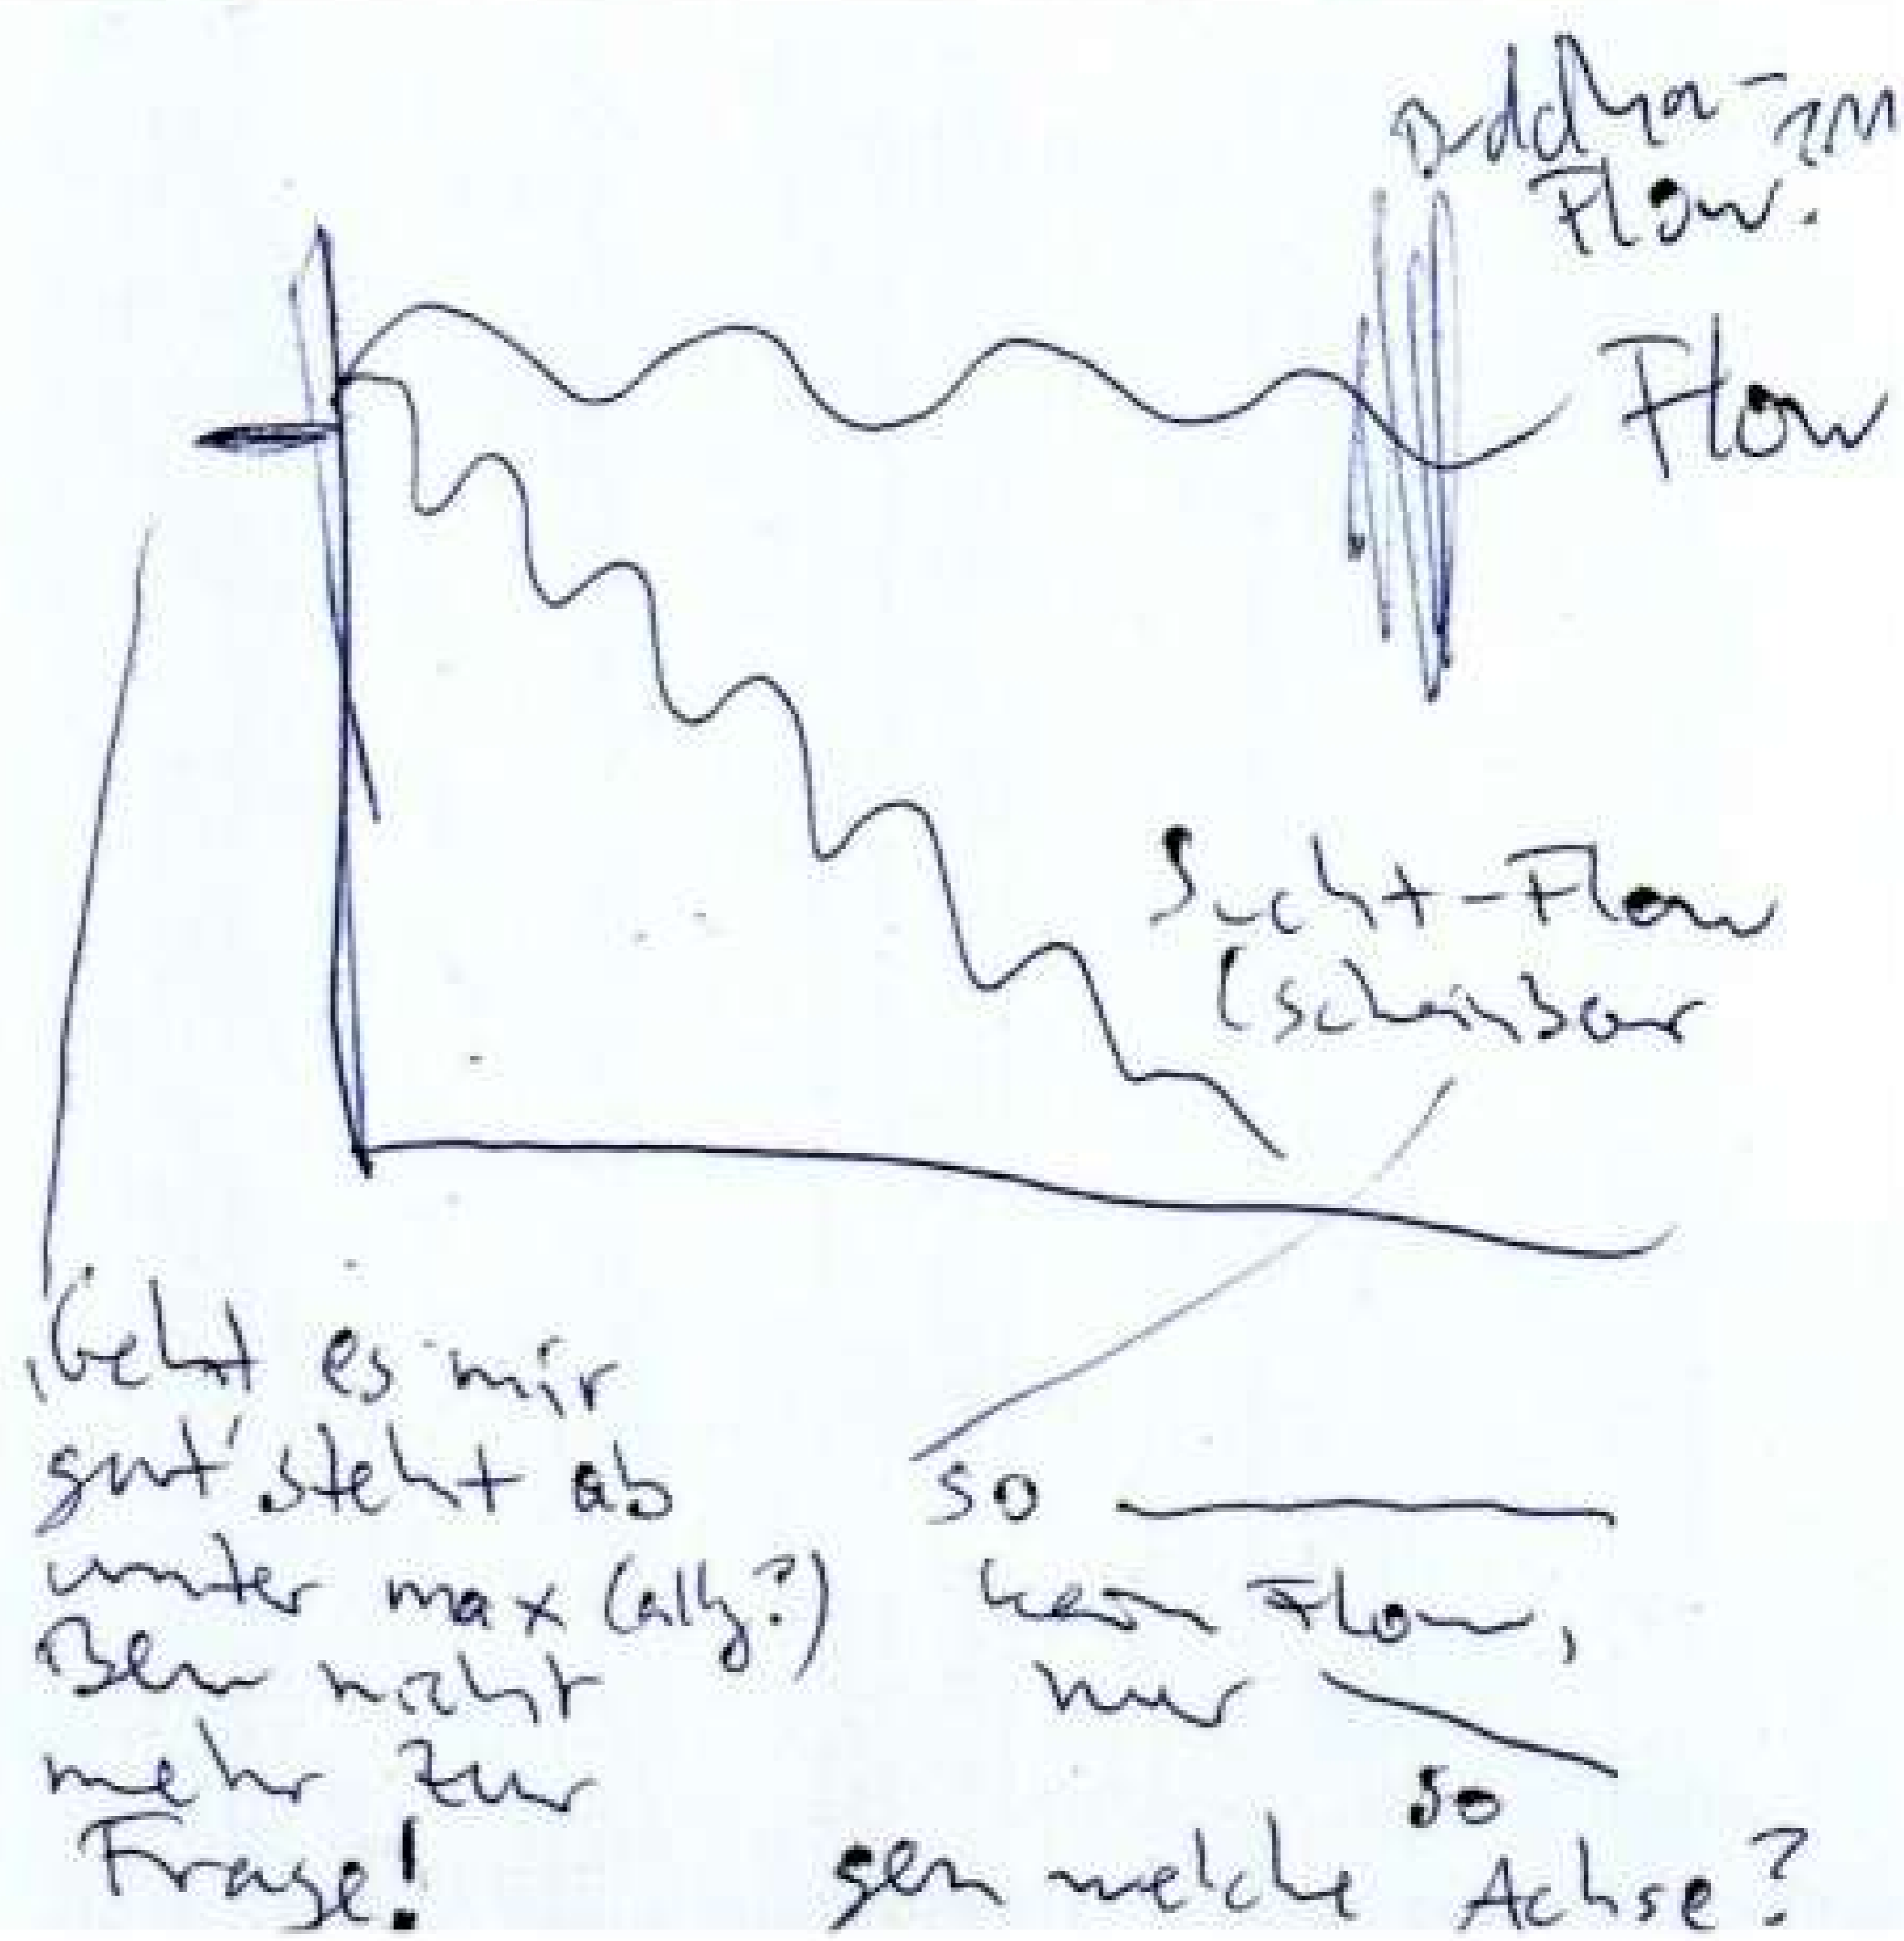 Buddha-
Flow.
Flow
Sucht-Flow
(scheinbar
'Geht es mir
gut' steht ab
unter max (allg?)
Bew nicht
mehr zur
Frage!
so
kein Flow,
nur
so
gen welche Achse?